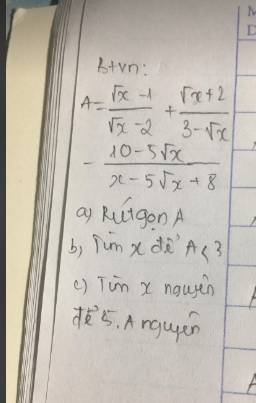 Btvn:
A = (√x - 1)/(√x - 2) + (√x + 2)/(3 - √x)
- (10 - 5√x)/(x - 5√x + 8)
a) Rút gọn A
b) Tìm x để A < 3
c) Tìm x nguyên
để 5. A nguyên